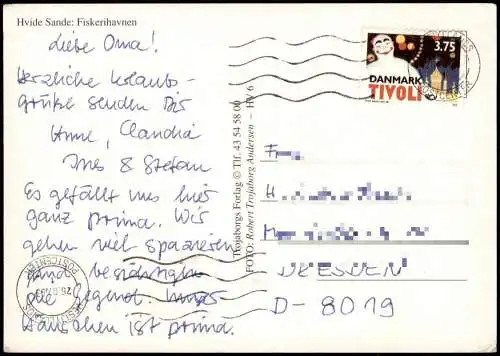 Hvide Sande: Fiskerihavnen
Liebe Oma!
Herzliche Urlaubs-
grüße senden Dir
Anne, Claudia
Ines & Stefan
Es gefällt uns hier
ganz prima. Wir
gehen viel spazieren
und besichtigen
die Gegend. Unser
Häuschen ist prima.
Trojaborgs Forlag © Tlf. 43 54 58 00
FOTO: Robert Trojaborg Andersen - HV 6
3.75
DANMARK
TIVOLI
POSTCENTER
DRESDEN
D-8019